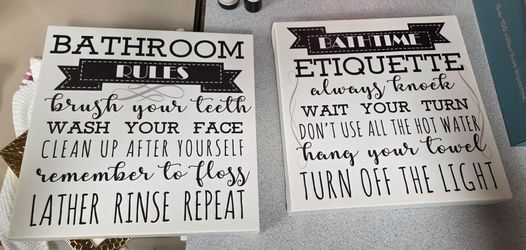 BATHROOM
RULES
brush your teeth
WASH YOUR FACE
CLEAN UP AFTER YOURSELF
remember to floss
LATHER RINSE REPEAT
BATHTIME
ETIQUETTE
always knock
WAIT YOUR TURN
DON'T USE ALL THE HOT WATER
hang your towel
TURN OFF THE LIGHT